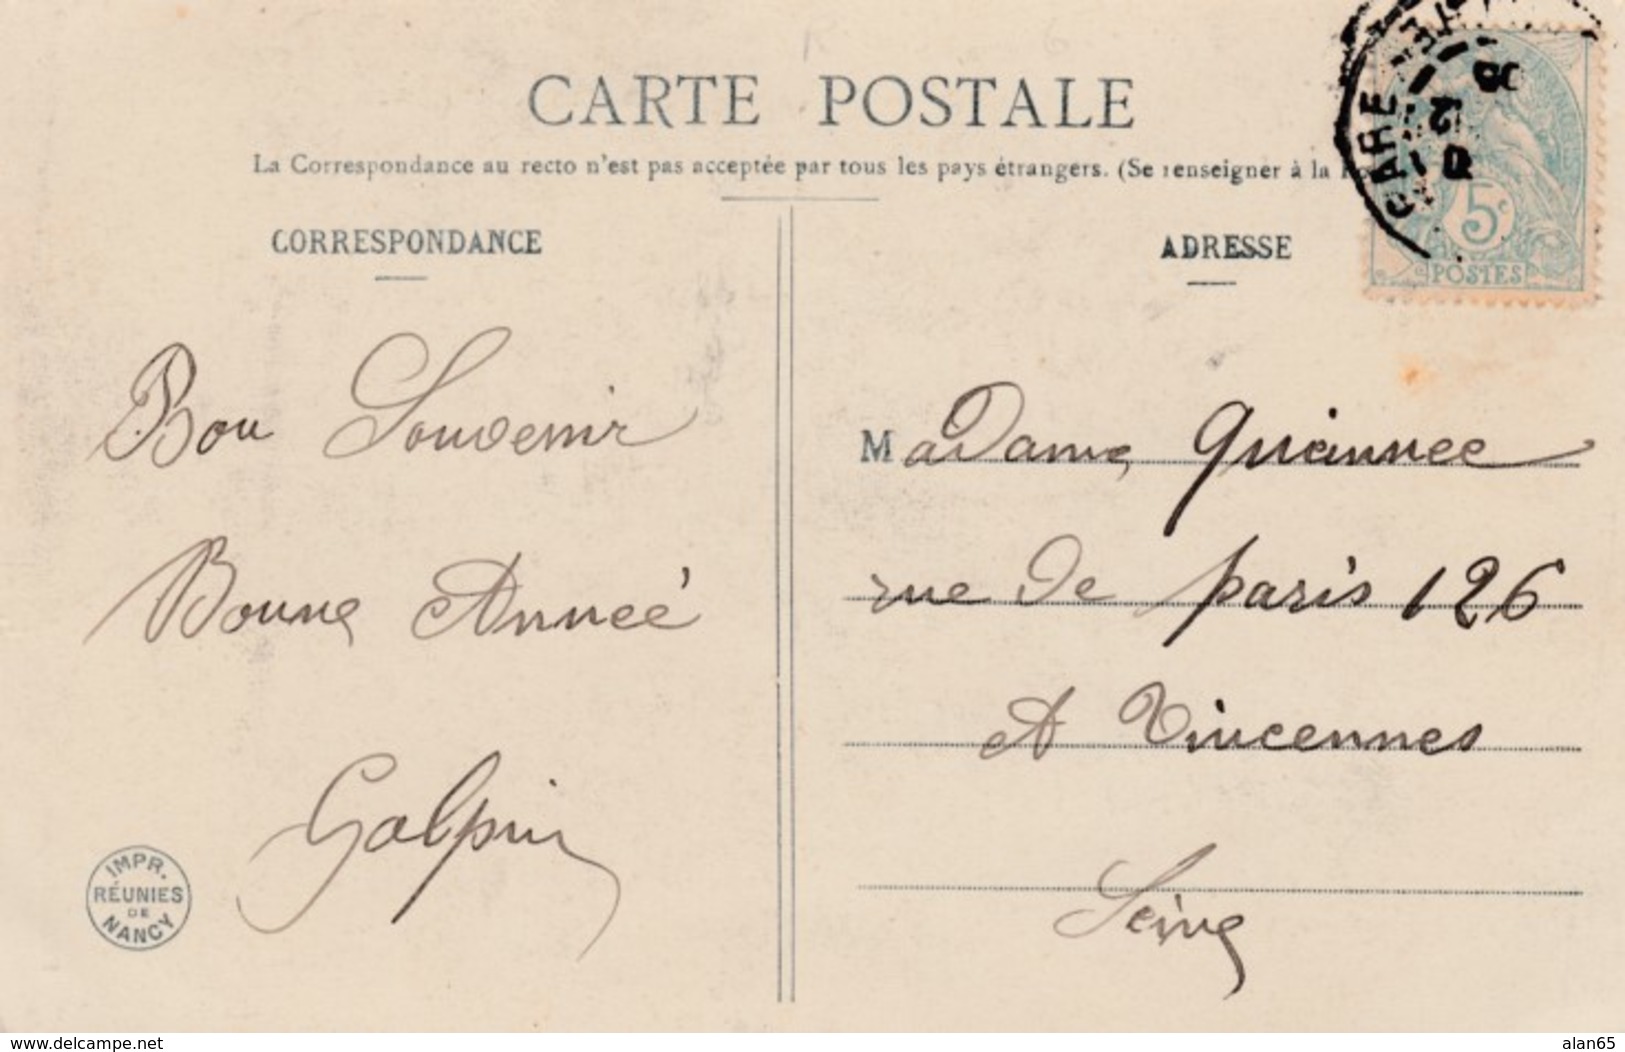 CARTE POSTALE
La Correspondance au recto n'est pas acceptée par tous les pays étrangers. (Se renseigner à la
CORRESPONDANCE
ADRESSE
5c
POSTES
GARE
12
Bon Souvenir
Bonne Année
Galpin
Madame
rue de paris 126
A Vincennes
Seine
IMPR.
RÉUNIES
DE
NANCY
www.delcampe.net
alan65